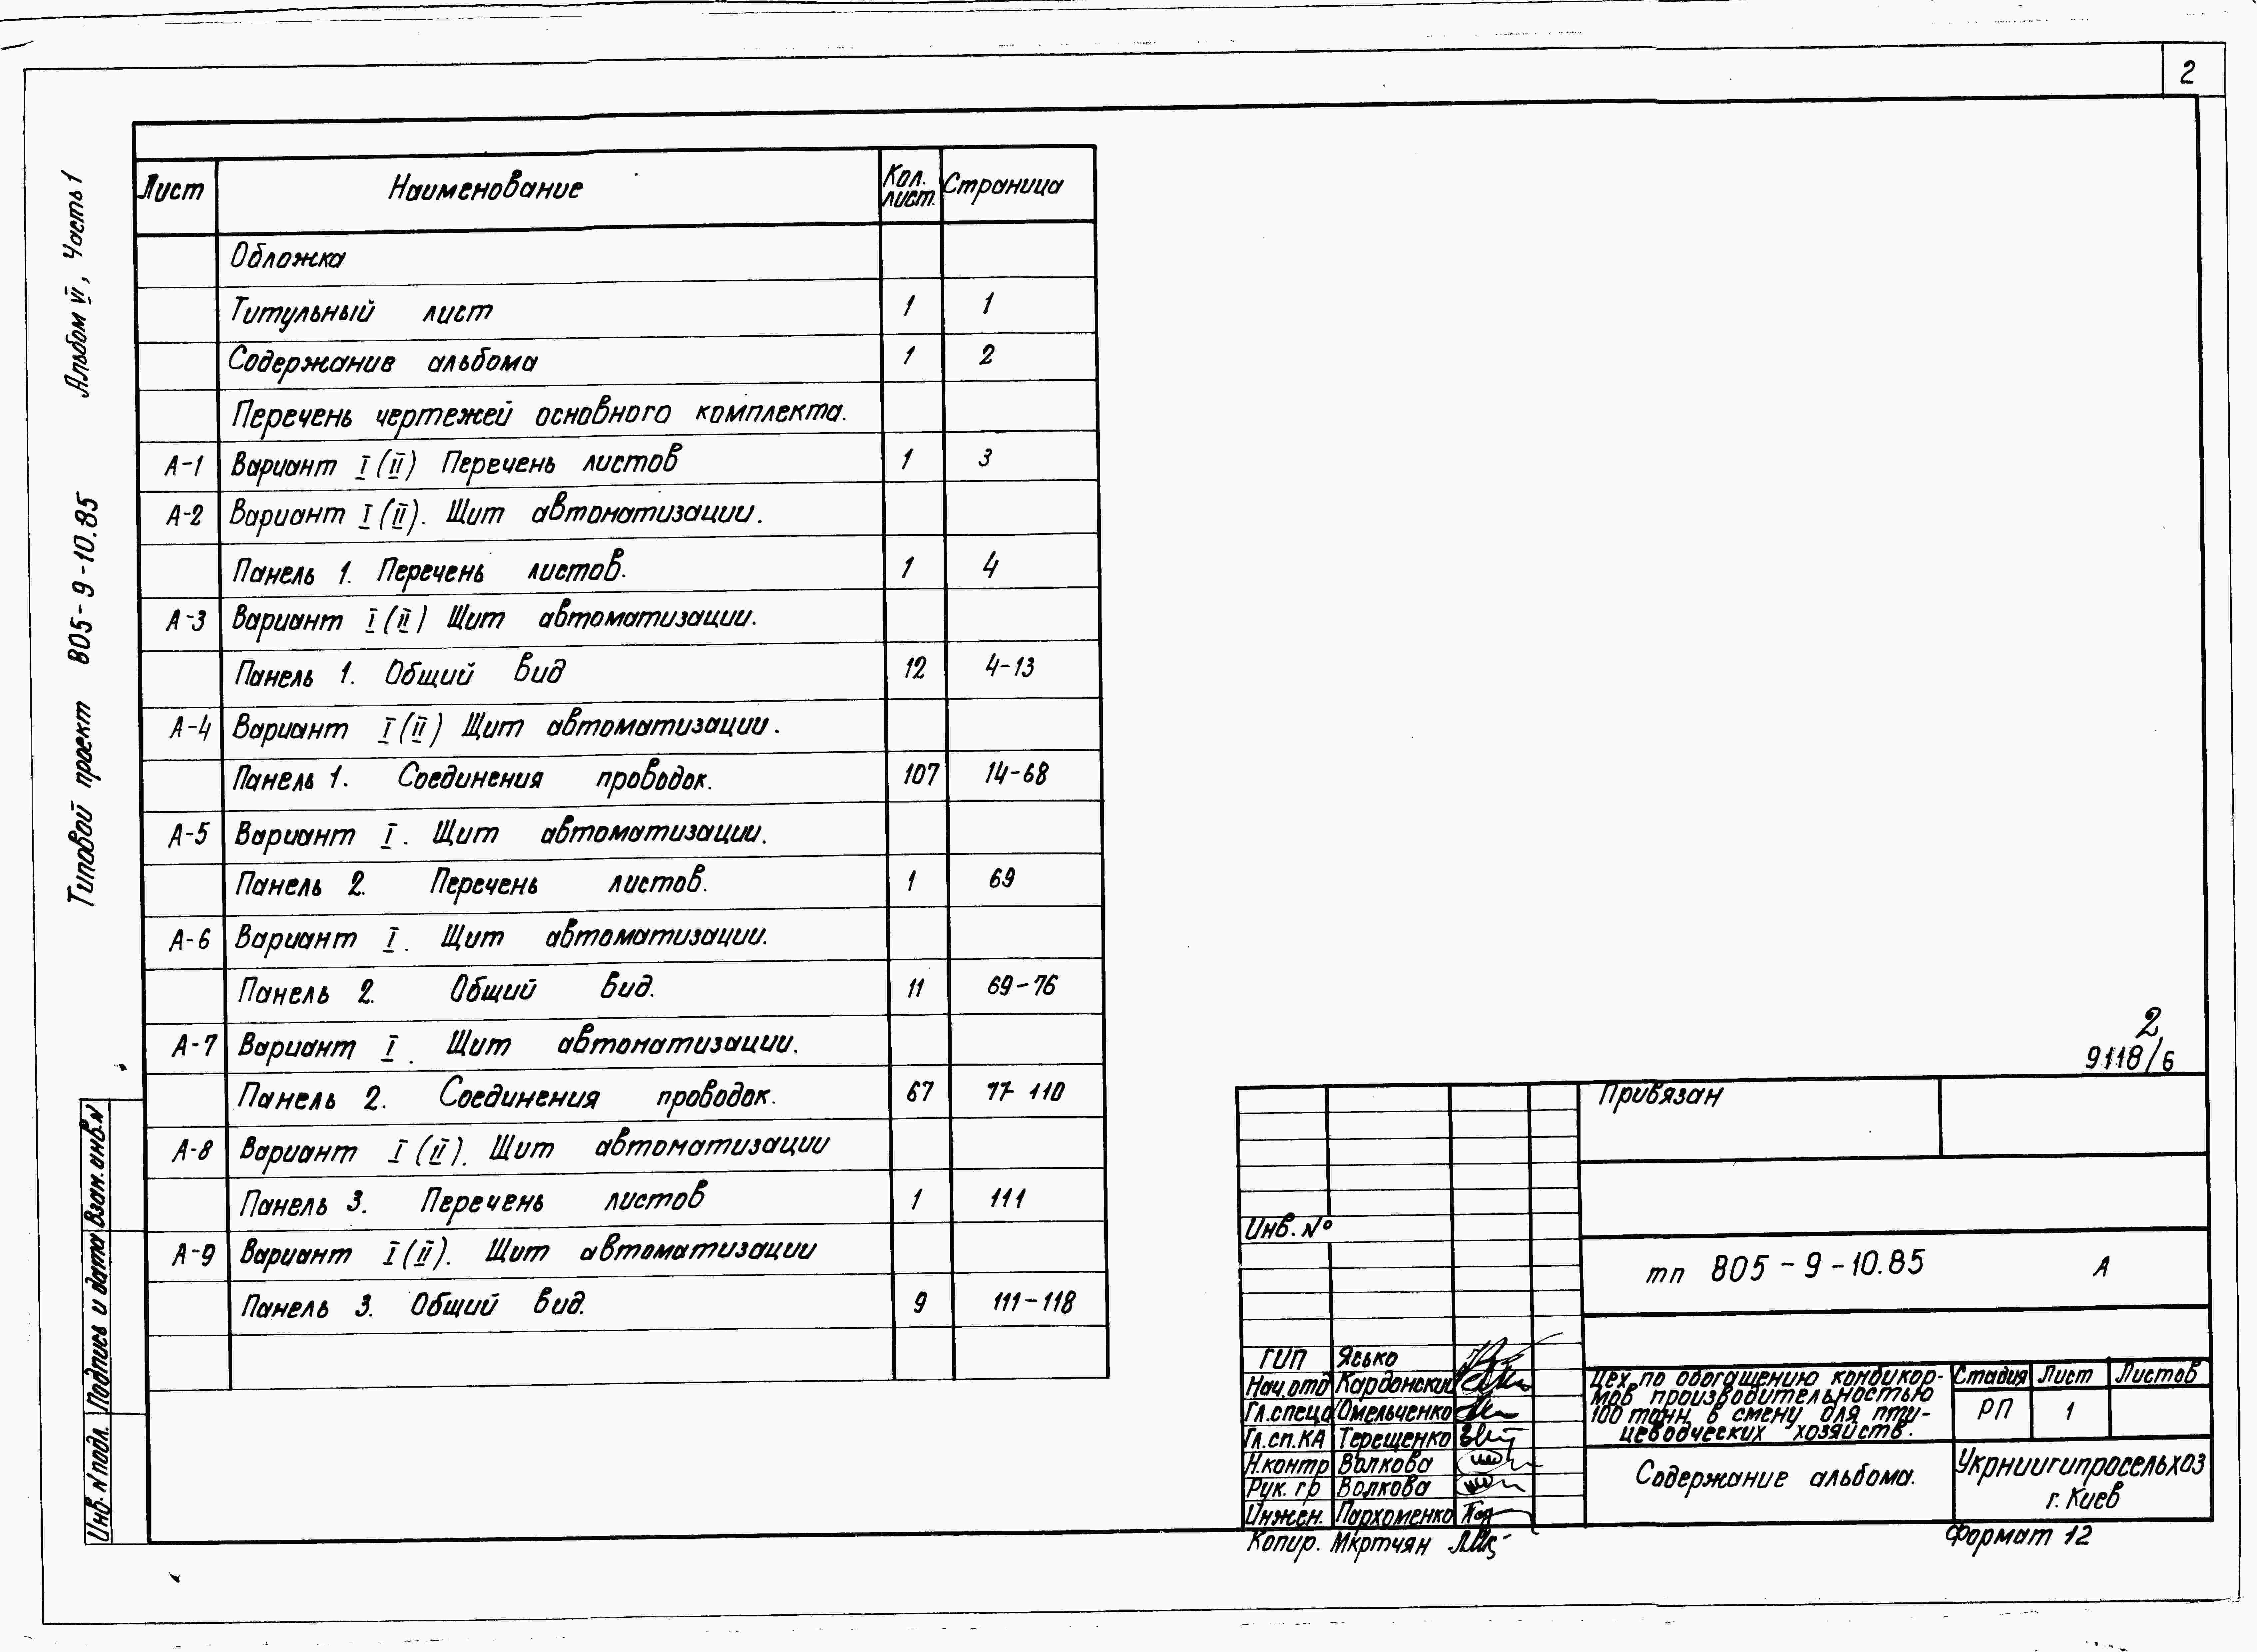 2
Альбом VI, Часть 1
Типовой проект 805-9-10.85
Лист Наименование Кол. лист. Страница
Обложка
Титульный лист 1 1
Содержание альбома 1 2
Перечень чертежей основного комплекта.
А-1 Вариант I (II) Перечень листов 1 3
А-2 Вариант I (II). Щит автоматизации.
Панель 1. Перечень листов. 1 4
А-3 Вариант I (II) Щит автоматизации.
Панель 1. Общий вид 12 4-13
А-4 Вариант I (II) Щит автоматизации.
Панель 1. Соединения проводок. 107 14-68
А-5 Вариант I. Щит автоматизации.
Панель 2. Перечень листов. 1 69
А-6 Вариант I. Щит автоматизации.
Панель 2. Общий вид. 11 69-76
А-7 Вариант I. Щит автоматизации.
Панель 2. Соединения проводок. 67 77-110
А-8 Вариант I (II). Щит автоматизации
Панель 3. Перечень листов 1 111
А-9 Вариант I (II). Щит автоматизации
Панель 3. Общий вид. 9 111-118
Взам. инв. N
Подпись и дата
Инв. N подл.
2
9118/6
Привязан
Инв. №
тп 805-9-10.85 А
ГИП Ясько
Нач.отд Кардонский
Гл.спец Омельченко
Гл.сп.КА Терещенко
Н.контр Волкова
Рук. гр Волкова
Инжен. Пархоменко
Копир. Мкртчян
Цех по обогащению комбикор-
мов производительностью
100 тонн в смену для пти-
цеводческих хозяйств.
Стадия Лист Листов
РП 1
Содержание альбома.
Укрниигипросельхоз
г. Киев
Формат 12